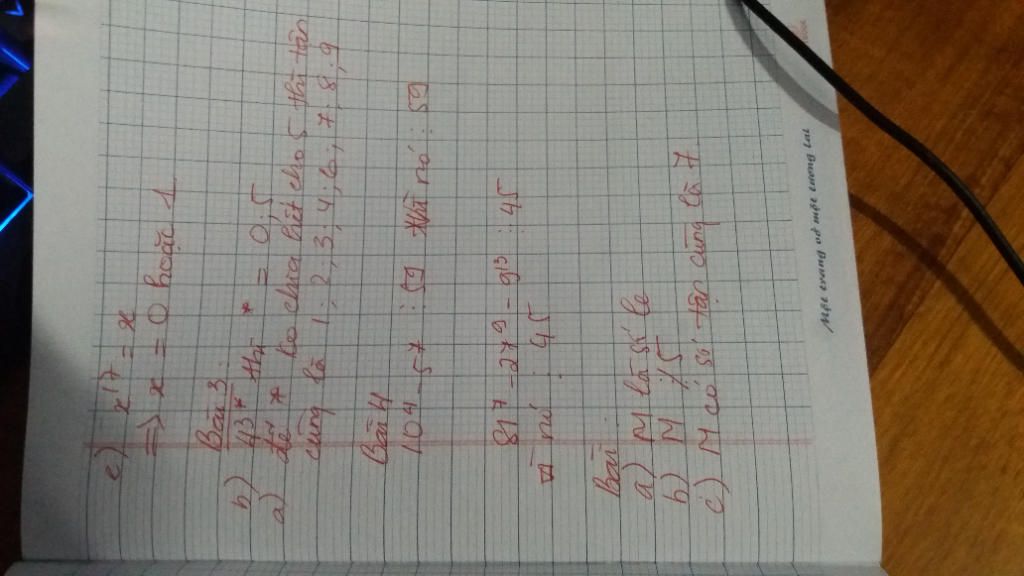 c) x¹⁷ = x
=> x = 0 hoặc 1
Bài 3:
b) 43* thì * = 0;5
a) để * ko chia hết cho 5 thì tận
cùng là 1; 2; 3; 4; 6; 7; 8; 9
Bài 4
10⁴ - 57 ⋮ 59 vì nó ⋮ 59
81⁷ - 27⁹ - 9¹³ ⋮ 45
vì nó ⋮ 45
Bài
a) M là số lẻ
b) M ⋮̸ 5
c) M có số tận cùng là 7
Một trang vở một tương lai